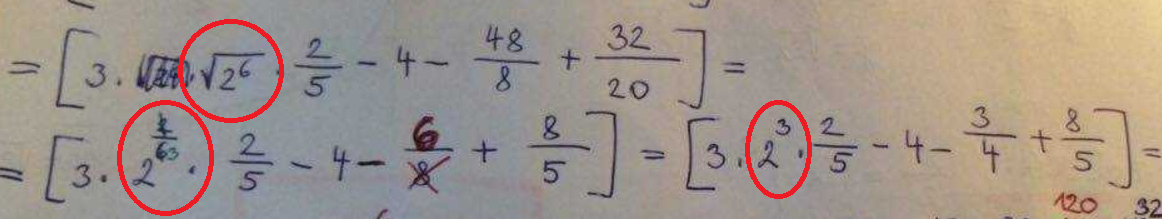 = [3 · √2⁶ · 2/5 - 4 - 48/8 + 32/20] =
= [3 · 2 · 2/5 - 4 - 6 + 8/5] = [3 · 2³ · 2/5 - 4 - 3/4 + 8/5] =
120 32